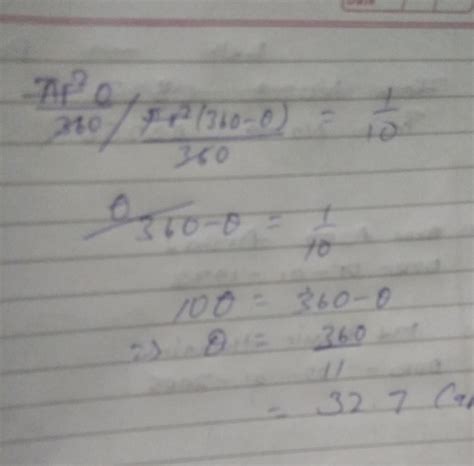 πr²θ/360 / πr²(360-θ)/360 = 1/10
θ/360-θ = 1/10
10θ = 360-θ
=> θ = 360/11
= 32.7